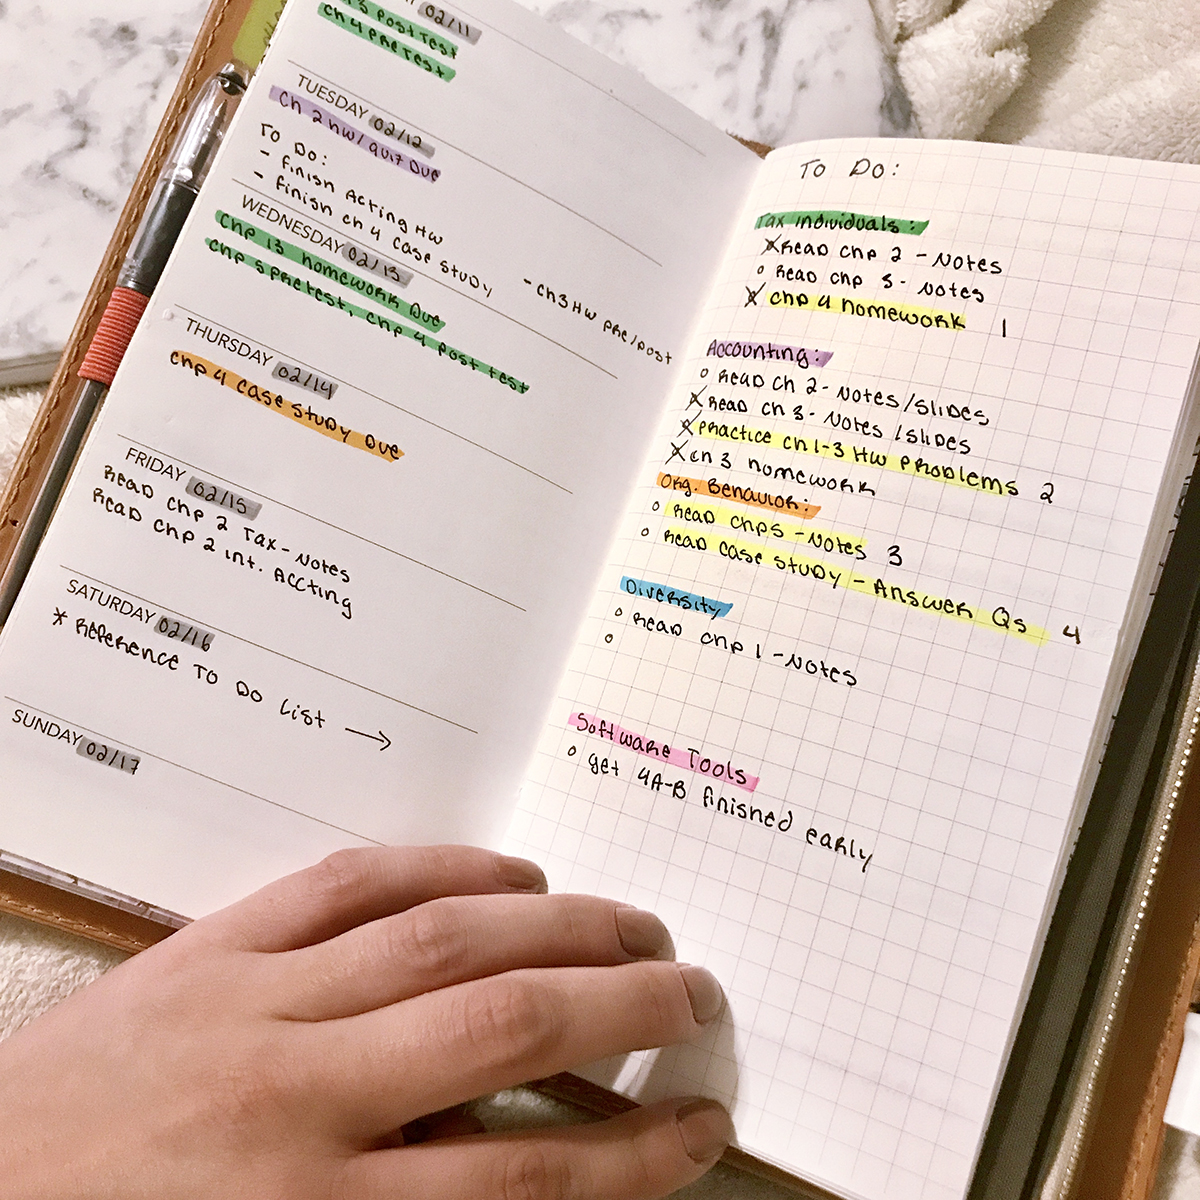 02/11
3 Post Test
Ch 4 Pre Test
TUESDAY 02/12
Ch 2 HW/Quiz Due
To Do:
- Finish Acting HW
- Finish Ch 4 Case Study
- Ch3 HW Pre/Post
WEDNESDAY 02/13
Chp 13 Homework Due
Chp 5 Pretest, Chp 4 Post Test
THURSDAY 02/14
Chp 4 Case Study Due
FRIDAY 02/15
Read Chp 2 Tax-Notes
Read Chp 2 Int. Accting
SATURDAY 02/16
* Reference To Do List →
SUNDAY 02/17
To Do:
Tax Individuals:
Read Chp 2 - Notes
Read Chp 3 - Notes
Chp 4 Homework 1
Accounting:
Read Ch 2 - Notes/Slides
Read Ch 3 - Notes/Slides
Practice Ch 1-3 HW Problems 2
Ch 3 Homework
Org. Behavior:
Read Chp5 - Notes 3
Read Case Study - Answer Qs 4
Diversity
Read Chp 1 - Notes
Software Tools
Get 4A-B finished early